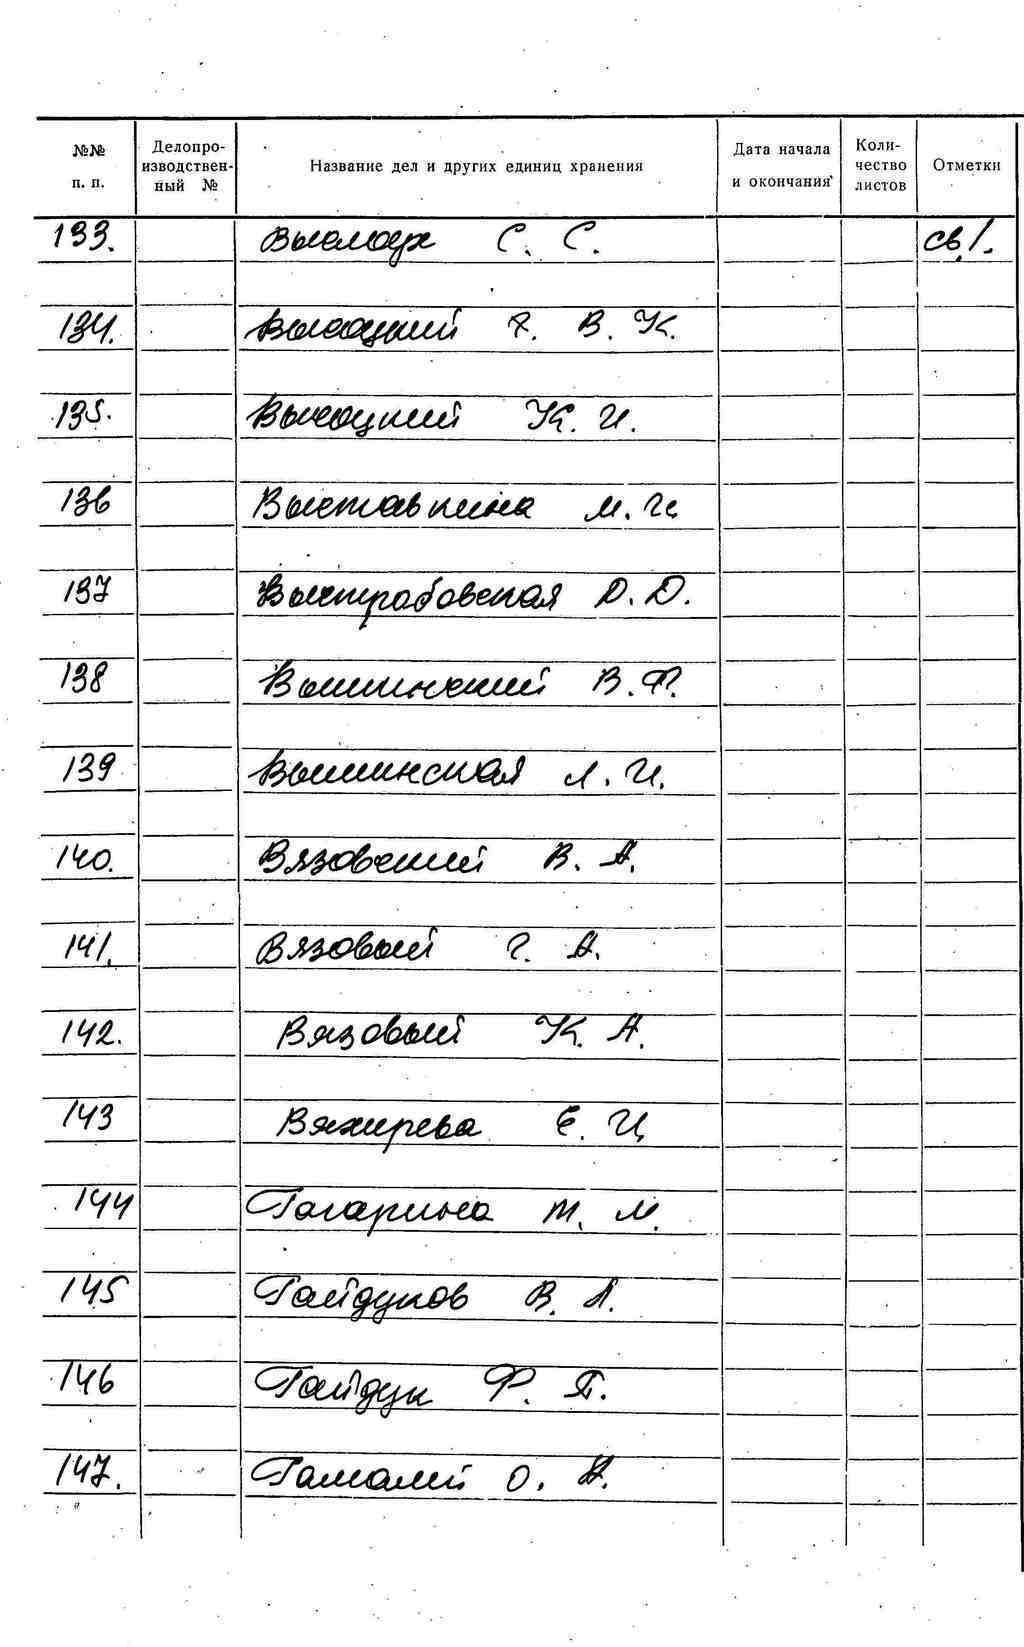 №№ п. п. Делопроизводственный № Название дел и других единиц хранения Дата начала и окончания Количество листов Отметки
133. С. С. св.1.
134. Высоцкий В. К.
135. Высоцкий К. И.
136 Выставкина М. И.
137 Выстработская Д. Д.
138 Вышинский В. Ф.
139 Вышинская Л. И.
140. Вязовский В. А.
141. Вязовый Г. А.
142. Вязовый К. А.
143 Вяхирева Е. И.
144 Гагарина Т. М.
145 Гайдуков В. А.
146 Гайдук Ф. П.
147. Гамалий О. А.